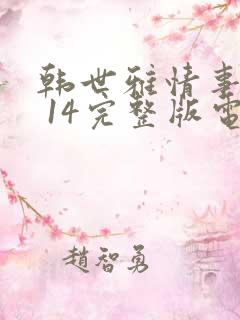 韩世雅情事
14完整版电
趙智勇